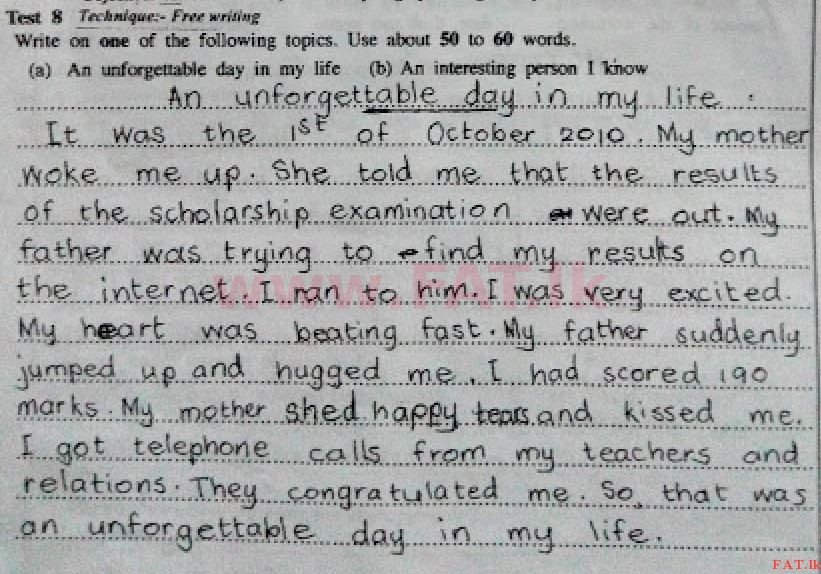 Test 8 Technique:- Free writing
Write on one of the following topics. Use about 50 to 60 words.
(a) An unforgettable day in my life (b) An interesting person I know
An unforgettable day in my life.
It was the 1st of October 2010. My mother
woke me up. She told me that the results
of the scholarship examination were out. My
father was trying to find my results on
the internet. I ran to him. I was very excited.
My heart was beating fast. My father suddenly
jumped up and hugged me. I had scored 190
marks. My mother shed happy tears and kissed me.
I got telephone calls from my teachers and
relations. They congratulated me. So, that was
an unforgettable day in my life.
www.FAT.lk
FAT.lk